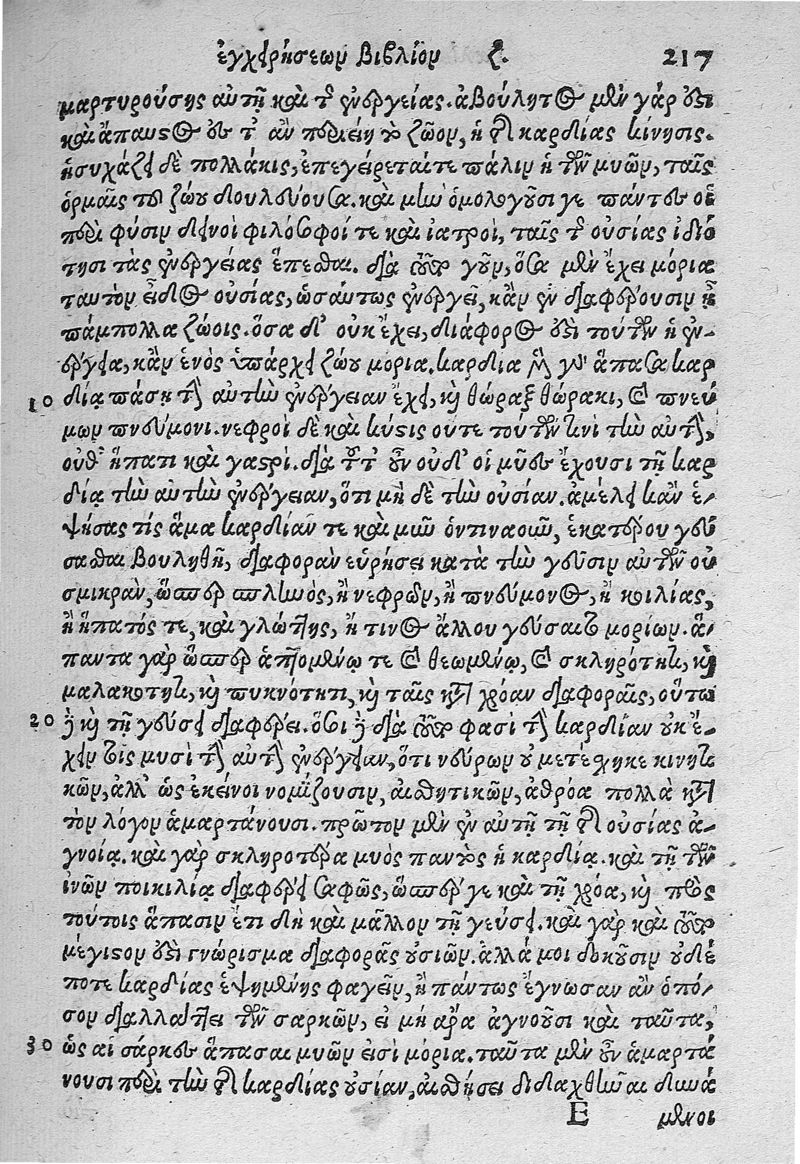 ἐγχειρήσεωμ βιβλίομ ζ. 217
μαρτυρούσης αὐτῇ καὶ τῆς ἐνεργείας. ἀβούλητος μὲν γάρ ἐστι
καὶ ἄπαυστος ἕως τ' ἂν περιείη τὸ ζῶομ, ἡ τῆς καρδίας κίνησις.
ἡσυχάζει δὲ πολλάκις, ἐπεγείρεταίτε πάλιμ ἡ τῶν μυῶμ, ταῖς
ὁρμαῖς τοῦ ζώου δουλεύουσα. καὶ μὴν ὁμολογοῦσι γε πάντες οἱ
περὶ φύσιμ δεινοὶ φιλόσοφοί τε καὶ ἰατροὶ, ταῖς τῆς οὐσίας ἰδιό
τησι τὰς ἐνεργείας ἕπεσθαι. διὰ τοῦτο γοῦμ, ὅσα μὲν ἔχει μόρια
ταυτὸμ εἶδος οὐσίας, ὡσαύτως ἐνεργεῖ, κἂμ ἐν διαφέρουσιμ ᾖ
πάμπολλα ζώοις. ὅσα δ' οὐκ ἔχει, διάφορος ἐστὶ τούτων ἡ ἐν-
έργεια, κἂμ ἑνὸς ὑπάρχει ζώου μόρια. καρδία μὲν γε ἅπασα καρ
10 δίᾳ πάσῃ τὴν αὐτὴν ἐνέργειαν ἔχει, καὶ θώραξ θώρακι, καὶ πνεύ
μωμ πνεύμονι. νεφροὶ δὲ καὶ κύστις ουτε τούτων τινὶ τὴν αὐτὴν,
οὐθ' ἥπατι καὶ γαστρί. διὰ τοῦτ' οὖν οὐδ' οἱ μῦες ἔχουσι τῇ καρ
δίᾳ τὴν αὐτὴν ἐνέργειαν, ὅτι μὴ δὲ τὴν οὐσίαν. ἀμέλει κἂν ἑ-
ψήσας τίς ἅμα καρδίαν τε καὶ μῦν ὁντιναοῦν, ἑκατέρου γεύ
σασθαι βουληθῇ, διαφορὰν εὑρήσει κατὰ τὴν γεῦσιμ αὐτῶν οὐ
σμικρὰν, ὥσπερ σπληνὸς, ἢ νεφρῶμ, ἢ πνεύμονος, ἢ κοιλίας,
ἢ ἥπατός τε, καὶ γλώττης, ἤ τινος ἄλλου γεύσαιτο μορίωμ. ἅ-
παντα γὰρ ὥσπερ ἁπτομένῳ τε καὶ θεωμένῳ, καὶ σκληρότητι, καὶ
μαλακοτητι, καὶ πυκνότητι, καὶ ταῖς κατὰ χρόαν διαφοραῖς, οὕτω
20 δὴ καὶ τῇ γεύσει διαφέρει. ὅσοι δὴ διὰ τοῦτο φασὶ τὴν καρδίαν οὐκ ἔ-
χειμ τοῖς μυσὶ τὴν αὐτὴν ἐνέργειαν, ὅτι νεύρωμ οὐ μετέσχηκε κινητι
κῶμ, ἀλλ' ὡς ἐκεῖνοι νομίζουσιμ, αἰσθητικῶμ, ἀθρόα πολλὰ κατὰ
τὸμ λόγομ ἁμαρτάνουσι. πρῶτομ μὲν ἐν αὐτῇ τῇ τῆς οὐσίας ἀ-
γνοίᾳ. καὶ γὰρ σκληροτέρα μυὸς παντὸς ἡ καρδία. καὶ τῇ τῶν
ἰνῶμ ποικιλίᾳ διαφέρει σαφῶς, ὥσπερ γε καὶ τῇ χρόᾳ, καὶ πρὸς
τούτοις ἅπασιμ ἔτι δὴ καὶ μᾶλλομ τῇ γεύσει. καὶ γὰρ καὶ τοῦτο
μέγιστομ ἐστὶ γνώρισμα διαφορᾶς οὐσιῶμ. ἀλλά μοι δοκοῦσιμ οὐδέ
ποτε καρδίας ἑψημένης φαγεῖμ, ἢ πάντως ἔγνωσαν ἂν ὁπό-
σομ διαλλάττει τῶν σαρκῶμ, εἰ μὴ ἄρα ἀγνοοῦσι καὶ ταῦτα,
30 ὡς αἱ σάρκες ἅπασαι μυῶμ εἰσὶ μόρια. ταῦτα μὲν οὖν ἁμαρτά
νουσι περὶ τὴν τῆς καρδίας οὐσίαν, αἰσθήσει διδαχθῆναι δυνά
E μενοι